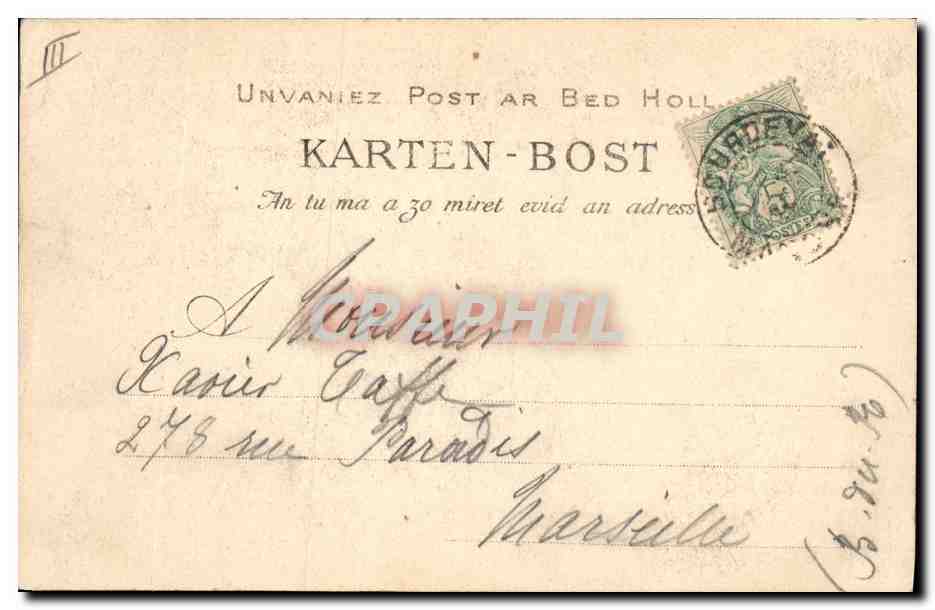 III
UNVANIEZ POST AR BED HOLL
KARTEN-BOST
An tu ma a zo miret evid an adress
A Monsieur
Xavier Taffe
278 rue Paradis
Marseille
(B. du R)
CPARAPHIL
POSTES